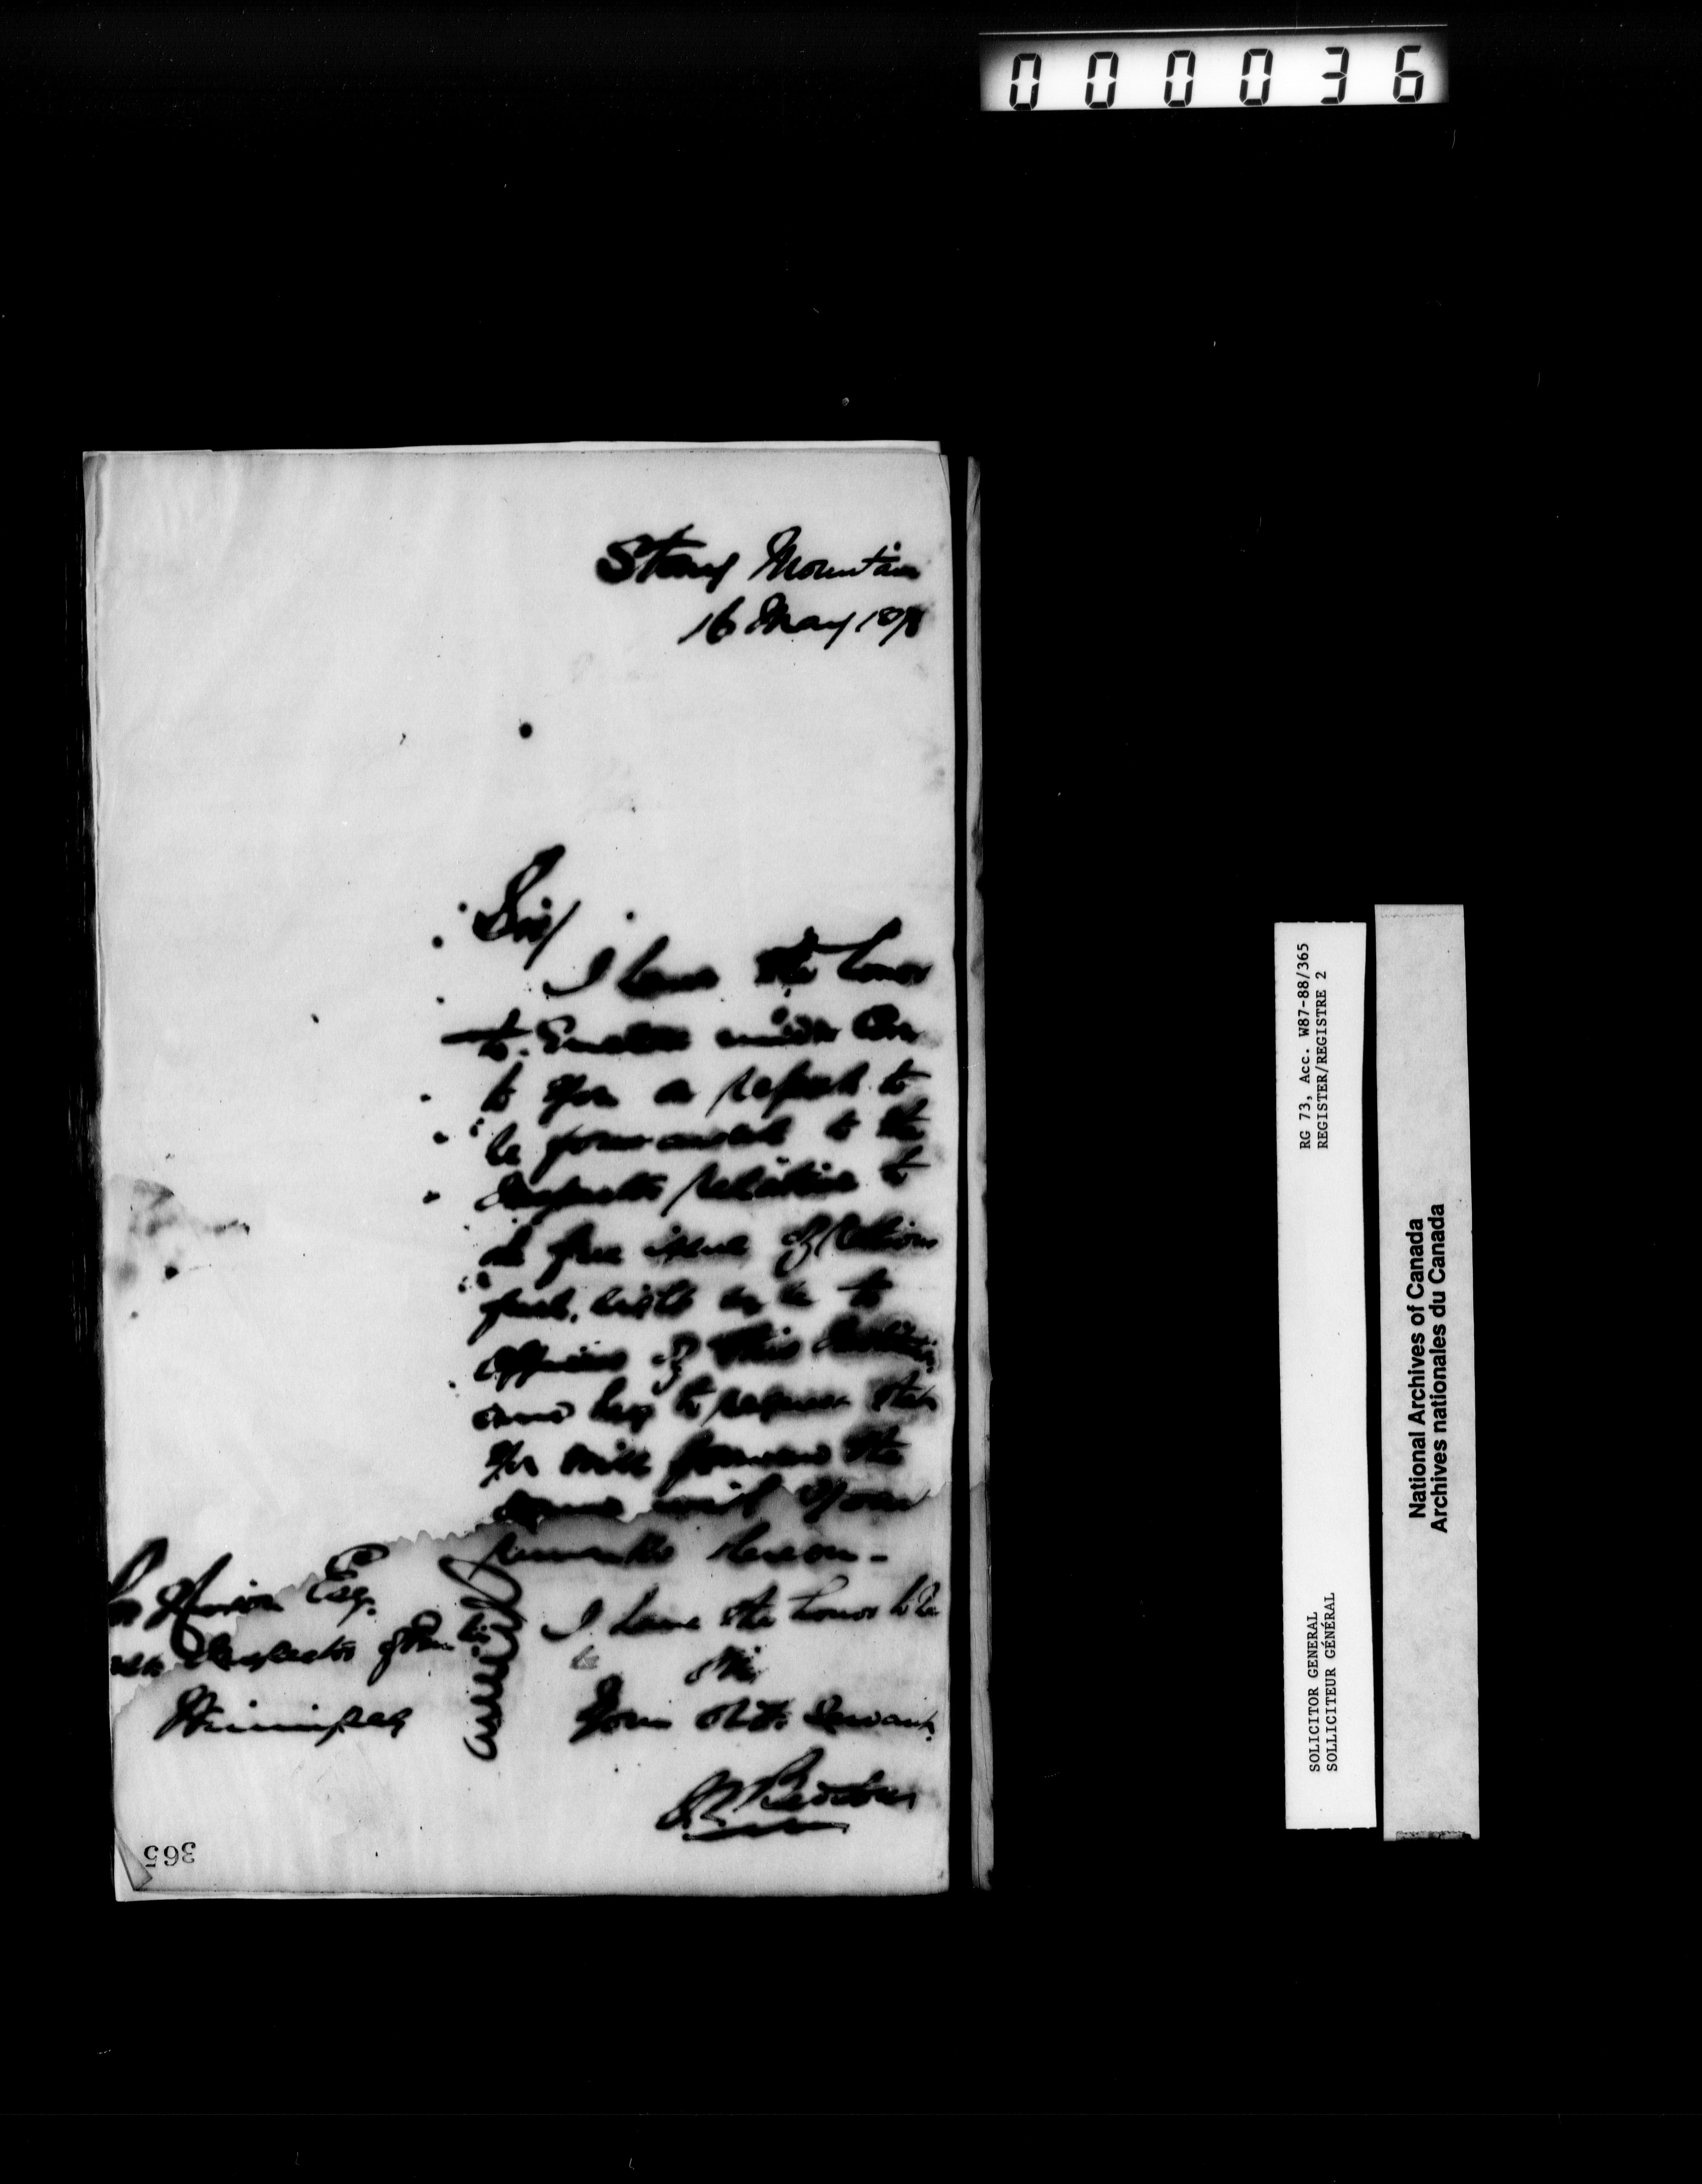 000036
Stony Mountain
16 May 1878
Sir/
I have the honor
to Enclose under Cover
to you a report to
be forwarded to the
Inspector relative to
free issue of rations
fuel, light &c &c to
Officers of this Institution
and beg to request that
you will forward the
same with your
remarks thereon -
I have the honor to be
Sir
Your Obt. Servant
S. L. Bedson
Esq.
Inspector of
Winnipeg
365
RG 73, Acc. W87-88/365
REGISTER/REGISTRE 2
SOLICITOR GENERAL
SOLLICITEUR GÉNÉRAL
National Archives of Canada
Archives nationales du Canada